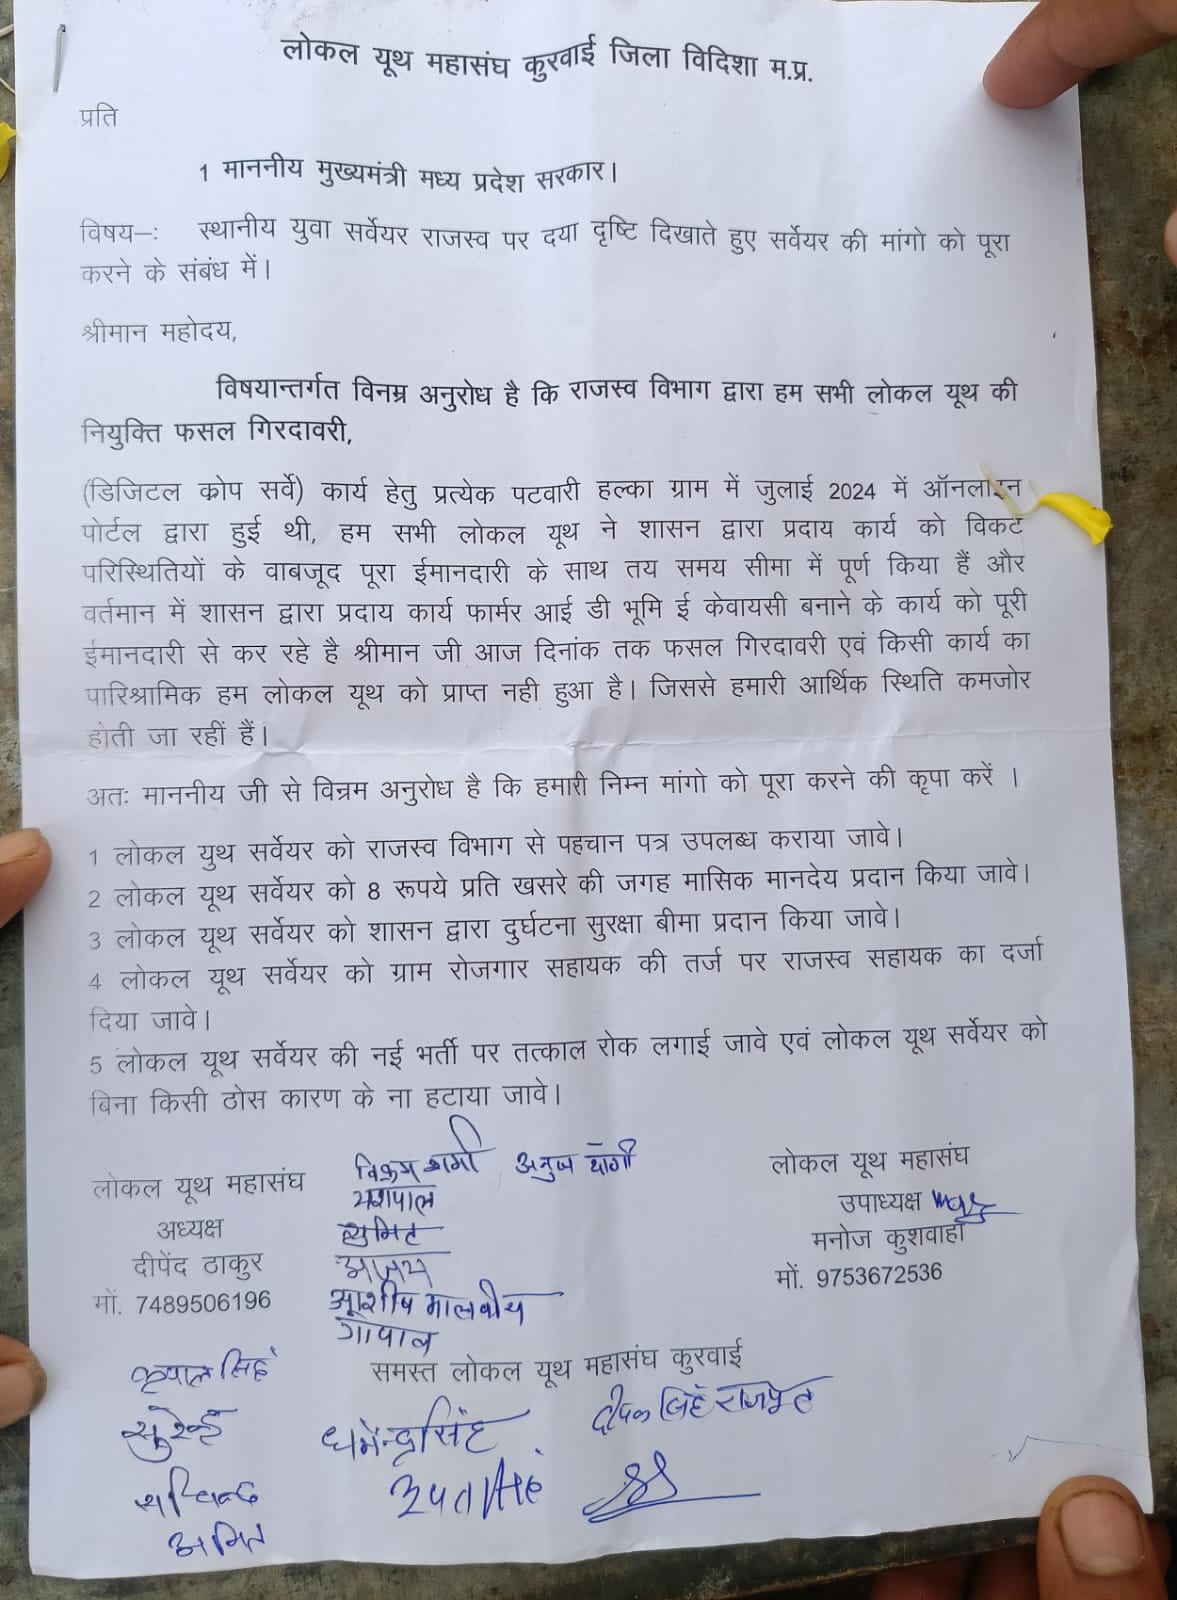 लोकल यूथ महासंघ कुरवाई जिला विदिशा म.प्र.
प्रति
1 माननीय मुख्यमंत्री मध्य प्रदेश सरकार।
विषय–: स्थानीय युवा सर्वेयर राजस्व पर दया दृष्टि दिखाते हुए सर्वेयर की मांगो को पूरा
करने के संबंध में।
श्रीमान महोदय,
विषयान्तर्गत विनम्र अनुरोध है कि राजस्व विभाग द्वारा हम सभी लोकल यूथ की
नियुक्ति फसल गिरदावरी,
(डिजिटल क्रोप सर्वे) कार्य हेतु प्रत्येक पटवारी हल्का ग्राम में जुलाई 2024 में ऑनलाइन
पोर्टल द्वारा हुई थी, हम सभी लोकल यूथ ने शासन द्वारा प्रदाय कार्य को विकट
परिस्थितियों के वाबजूद पूरा ईमानदारी के साथ तय समय सीमा में पूर्ण किया हैं और
वर्तमान में शासन द्वारा प्रदाय कार्य फार्मर आई डी भूमि ई केवायसी बनाने के कार्य को पूरी
ईमानदारी से कर रहे है श्रीमान जी आज दिनांक तक फसल गिरदावरी एवं किसी कार्य का
पारिश्रामिक हम लोकल यूथ को प्राप्त नही हुआ है। जिससे हमारी आर्थिक स्थिति कमजोर
होती जा रहीं हैं।
अतः माननीय जी से विन्रम अनुरोध है कि हमारी निम्न मांगो को पूरा करने की कृपा करें ।
1 लोकल युथ सर्वेयर को राजस्व विभाग से पहचान पत्र उपलब्ध कराया जावे।
2 लोकल यूथ सर्वेयर को 8 रूपये प्रति खसरे की जगह मासिक मानदेय प्रदान किया जावे।
3 लोकल यूथ सर्वेयर को शासन द्वारा दुर्घटना सुरक्षा बीमा प्रदान किया जावे।
4 लोकल यूथ सर्वेयर को ग्राम रोजगार सहायक की तर्ज पर राजस्व सहायक का दर्जा
दिया जावे।
5 लोकल यूथ सर्वेयर की नई भर्ती पर तत्काल रोक लगाई जावे एवं लोकल यूथ सर्वेयर को
बिना किसी ठोस कारण के ना हटाया जावे।
लोकल यूथ महासंघ
अध्यक्ष
दीपेंद ठाकुर
मों. 7489506196
विक्रम शर्मा अनुज योगी
यशपाल
सुमित
अजय
आशीष मालवीय
गोपाल
लोकल यूथ महासंघ
उपाध्यक्ष
मनोज कुशवाहा
मों. 9753672536
समस्त लोकल यूथ महासंघ कुरवाई
कृपाल सिंह
सुरेन्द्र
धर्मेन्द्र सिंह
दीपक सिंह राजपूत
अमित